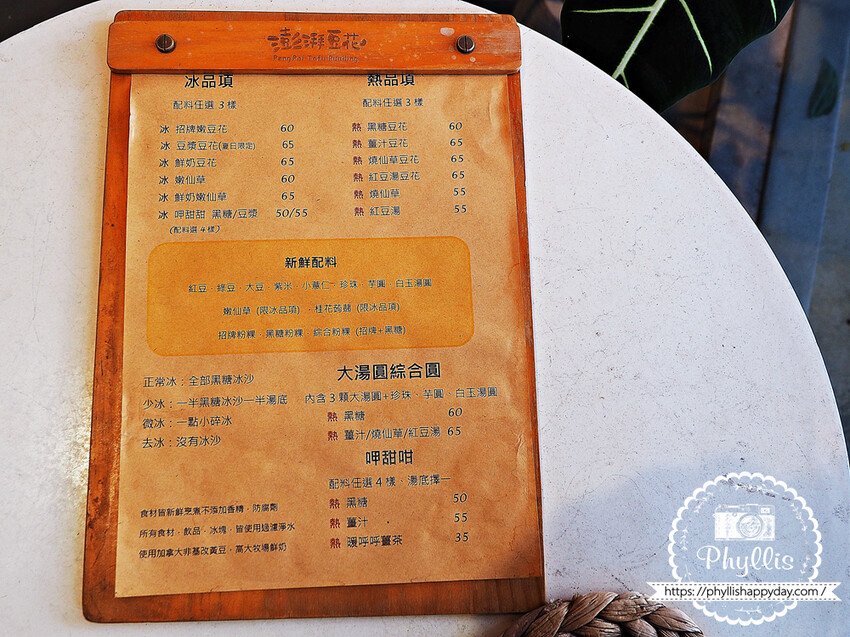 澎湃豆花
PengPai Tofu Pudding
冰品項
配料任選3樣
冰 招牌嫩豆花 60
冰 豆漿豆花(夏日限定) 65
冰 鮮奶豆花 65
冰 嫩仙草 60
冰 鮮奶嫩仙草 65
冰 呷甜甜 黑糖/豆漿 50/55
(配料選4樣)
熱品項
配料任選3樣
熱 黑糖豆花 60
熱 薑汁豆花 65
熱 燒仙草豆花 65
熱 紅豆湯豆花 65
熱 燒仙草 55
熱 紅豆湯 55
新鮮配料
紅豆、綠豆、大豆、紫米、小薏仁、珍珠、芋圓、白玉湯圓
嫩仙草 (限冰品項) 、桂花蒟蒻 (限冰品項)
招牌粉粿、黑糖粉粿、綜合粉粿 (招牌+黑糖)
正常冰：全部黑糖冰沙
少冰：一半黑糖冰沙一半湯底
微冰：一點小碎冰
去冰：沒有冰沙
大湯圓綜合圓
內含3顆大湯圓+珍珠、芋圓、白玉湯圓
熱 黑糖 60
熱 薑汁/燒仙草/紅豆湯 65
呷甜咁
配料任選4樣、湯底擇一
熱 黑糖 50
熱 薑汁 55
熱 暖呼呼薑茶 35
食材皆新鮮烹煮不添加香精、防腐劑
所有食材、飲品、冰塊、皆使用過濾淨水
使用加拿大非基改黃豆、高大牧場鮮奶
Phyllis
https://phyllishappyday.com/